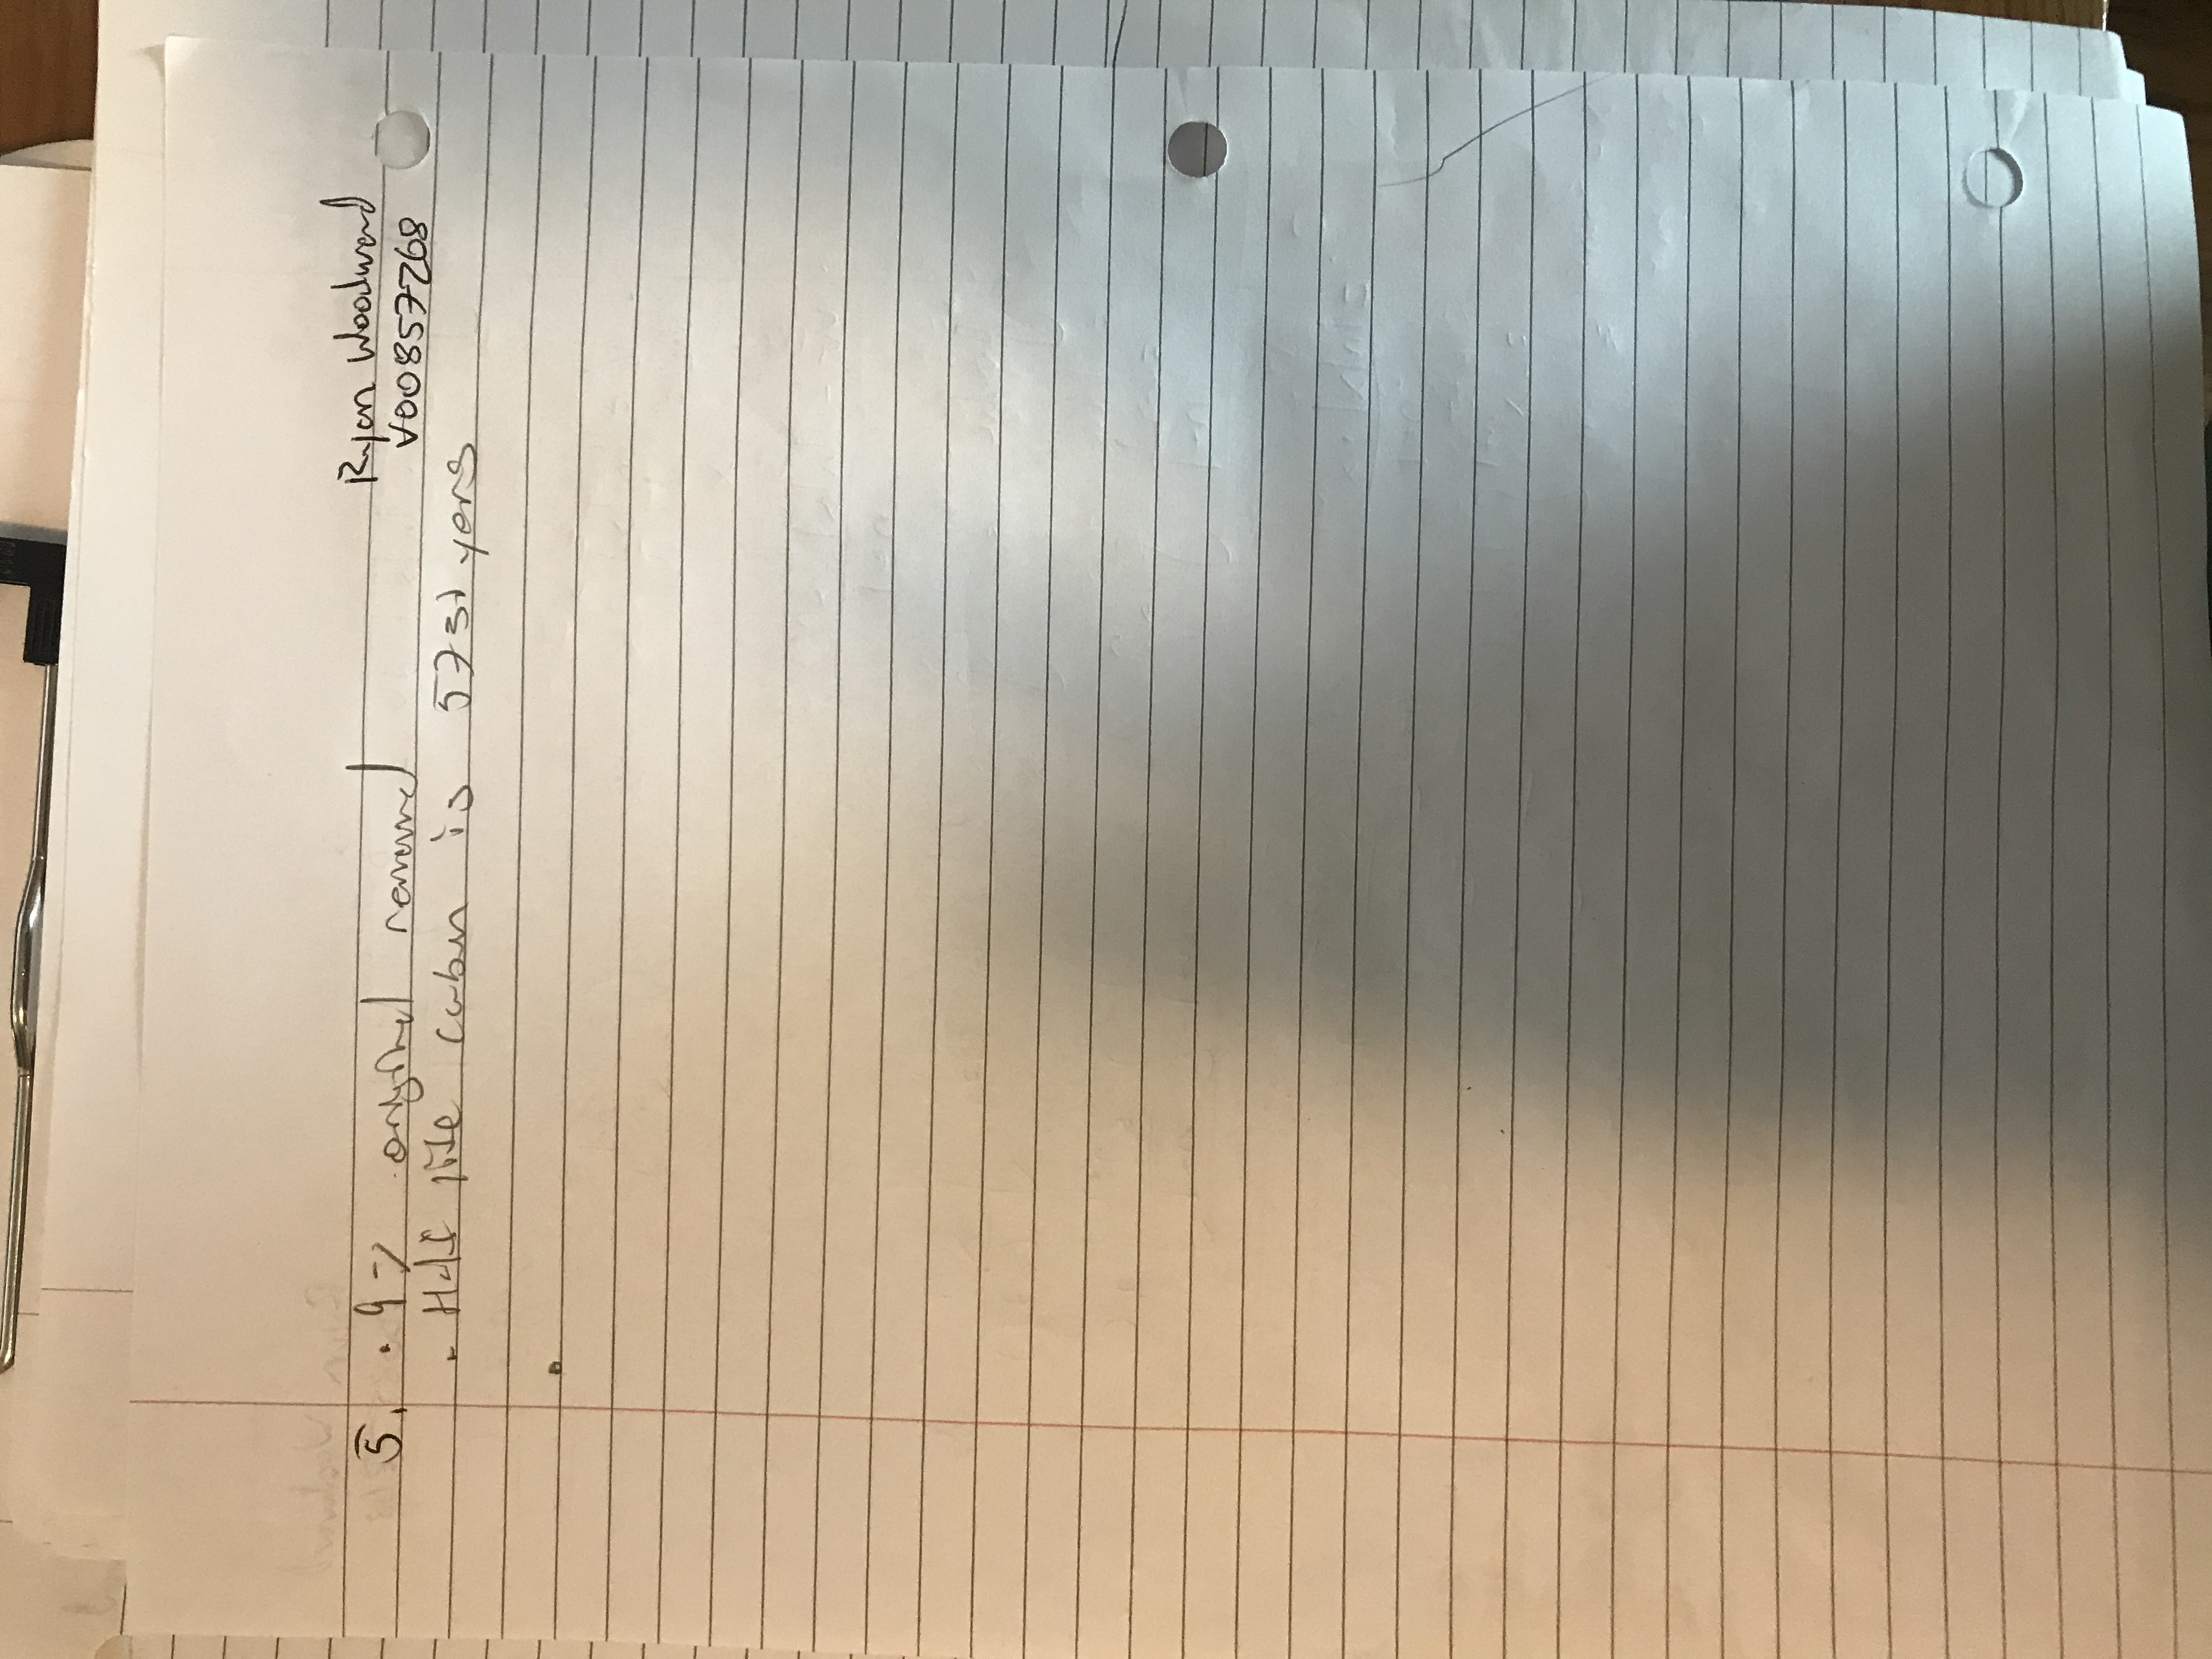 Ryan Woodward
V00857268
5. • 9% original removed
• Half life carbon is 5730 years
•